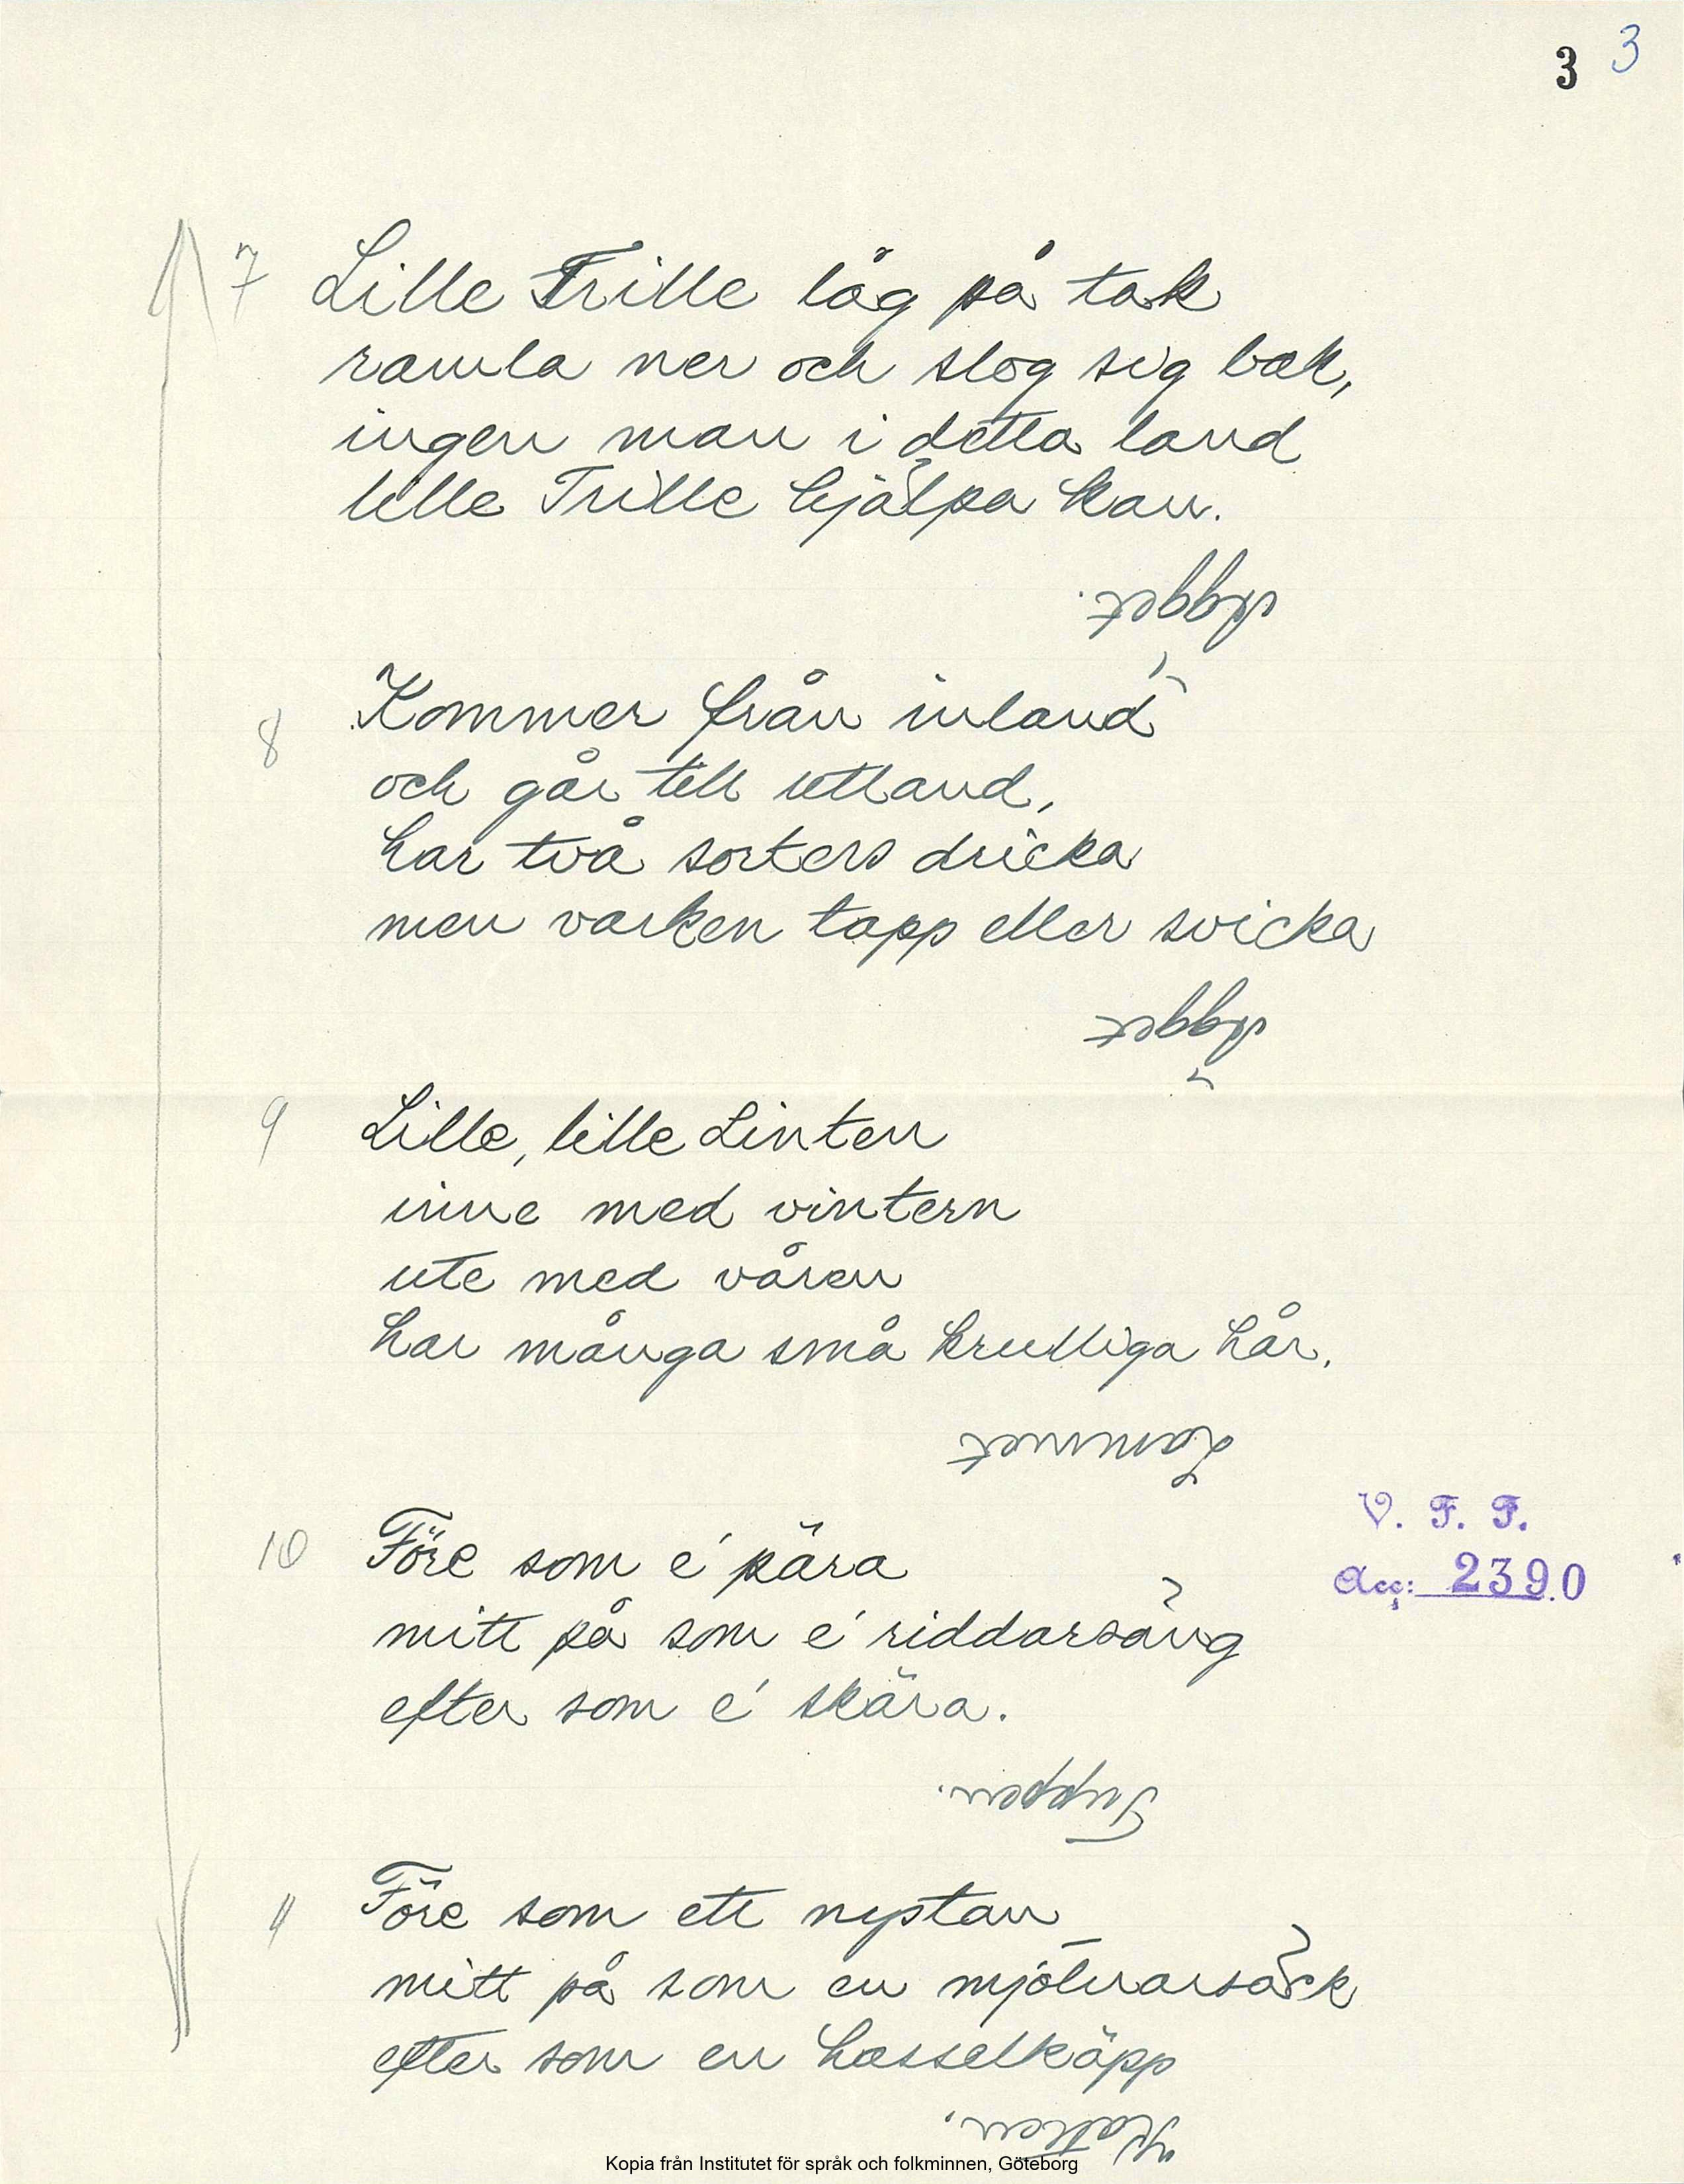 3 3
7 Lille Trille låg på tak
ramla ner och slog sig bak,
ingen man i detta land
lille Trille hjälpa kan.
Ägget.
8 Kommer från inland
och går till utland,
har två sorters dricka
men varken tapp eller svicka
Ägget
9 Lille, lille Linten
inne med vintern
ute med våren
har många små krulliga hår.
Lammet
10 Före som e' pära
mitt på som e' riddarsäng
efter som e' skära.
V. F. F.
Acc: 2390
Tuppen.
11 Före som ett nystan
mitt på som en mjölnarsäck
efter som en hasselkäpp
Katten.
Kopia från Institutet för språk och folkminnen, Göteborg